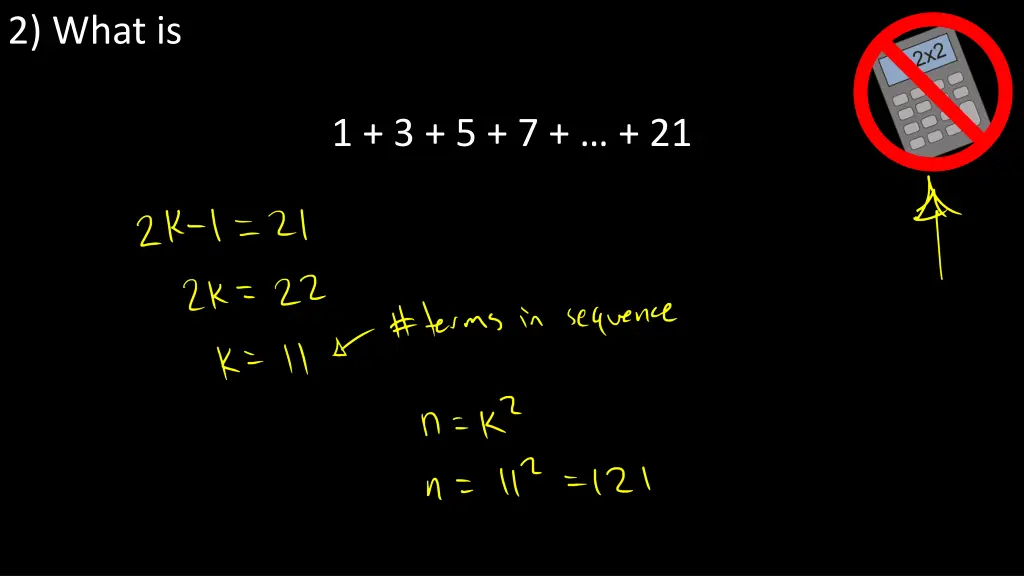 2) What is
2x2
1 + 3 + 5 + 7 + ... + 21
2k-1 = 21
2k = 22
# terms in sequence
k = 11
n = k²
n = 11² = 121